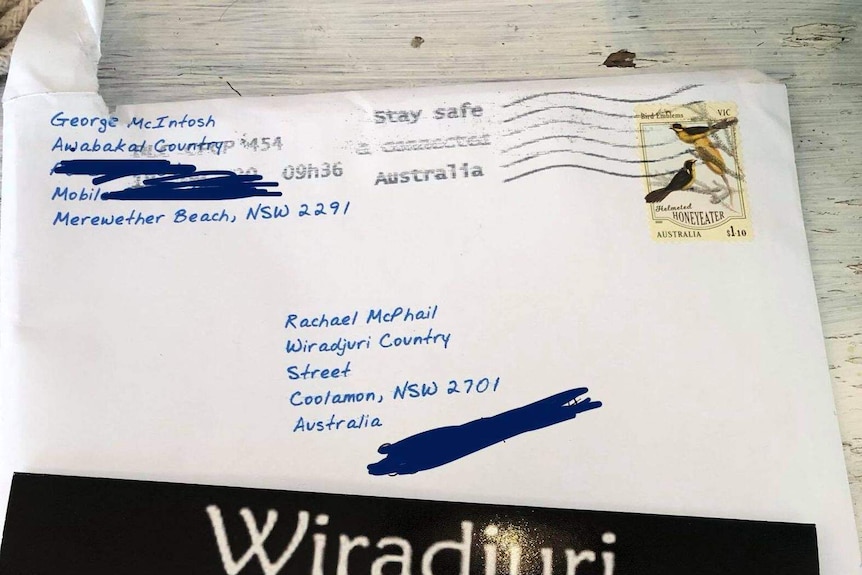 George McIntosh
Awabakal Country
Mobile
Merewether Beach, NSW 2291
454
09h36
Stay safe
& connected
Australia
Bird Emblems VIC
Helmeted
HONEYEATER
AUSTRALIA $1.10
Rachael McPhail
Wiradjuri Country
Street
Coolamon, NSW 2701
Australia
Wiradjuri